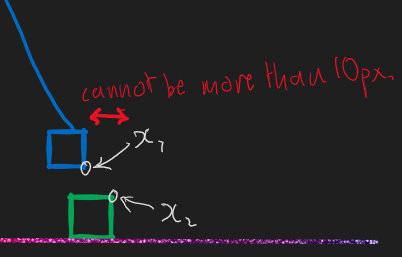 cannot be more than 10px.
x₁
x₂